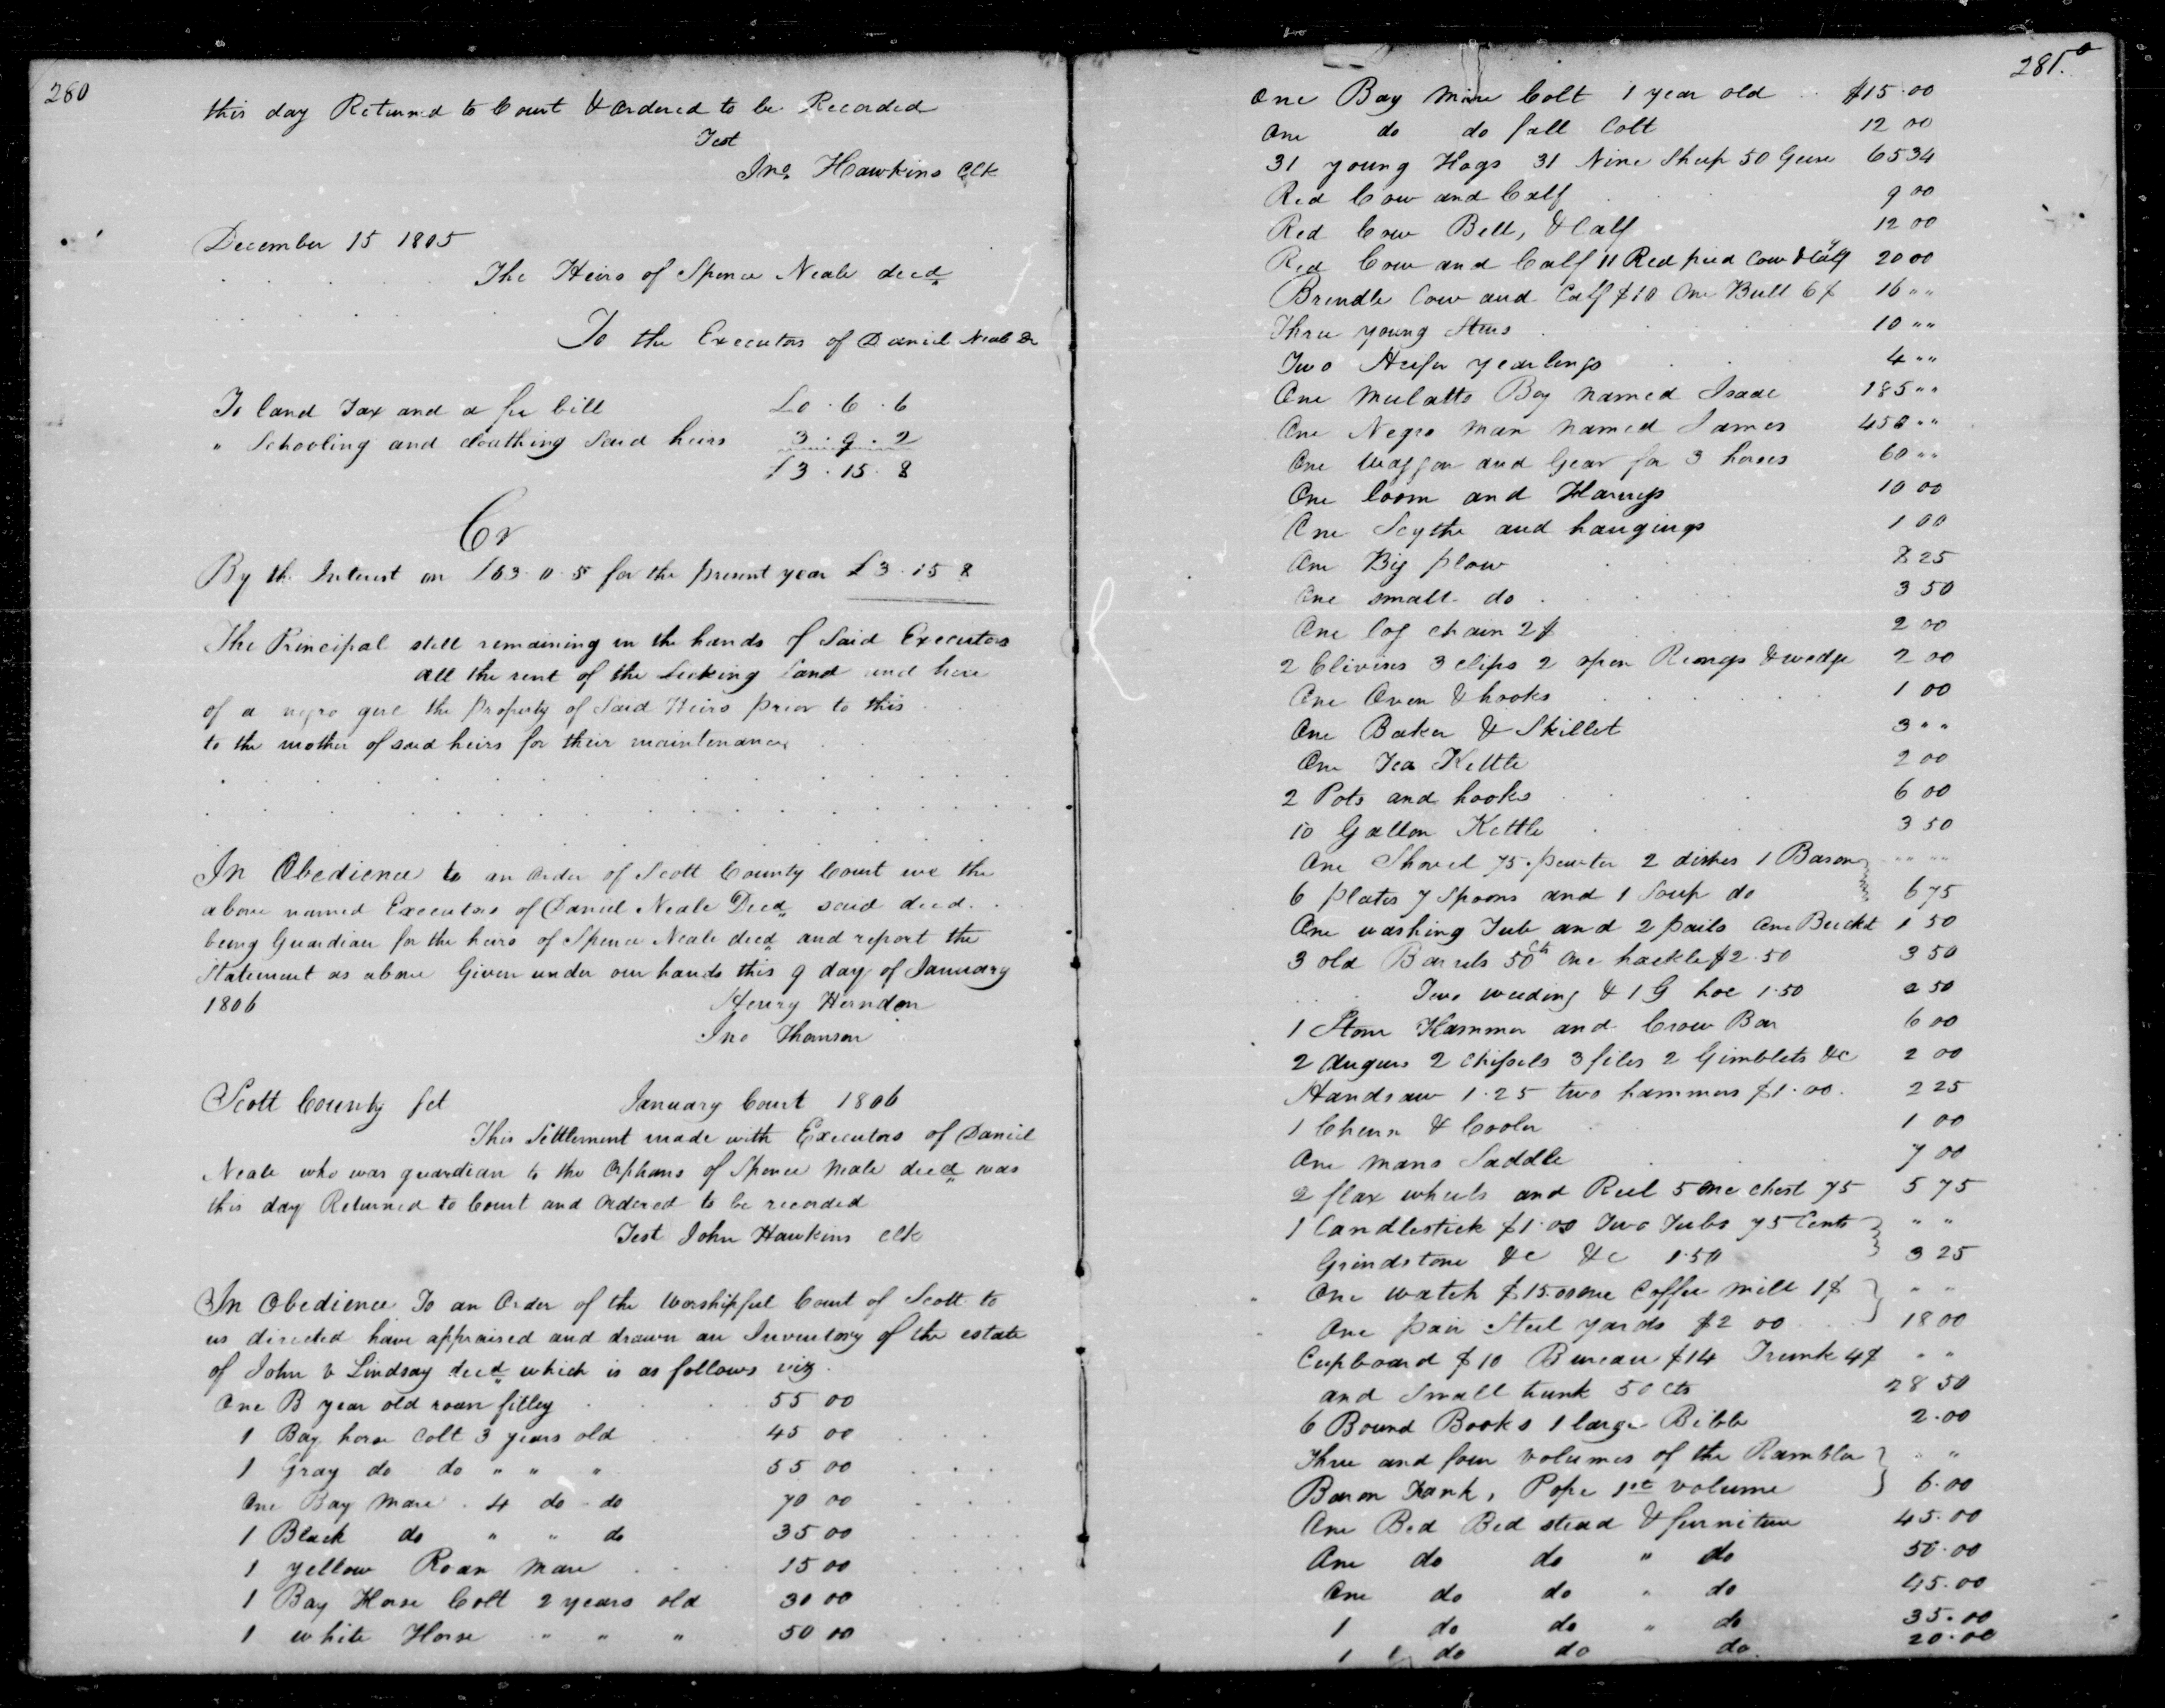 280
this day Returned to Court & Ordered to be Recorded
Test
Jno. Hawkins Clk
December 15 1805
The Heirs of Spence Neale decd
To the Executors of Daniel Neale Dr
To land Tax and a fee bill £0 . 6 . 6
" Schooling and cloathing Said heirs 3 . 9 . 2
£3 . 15 . 8
Cr
By the Interest on £63 . 0 . 5 for the present year £3 . 15 8
The Principal still remaining in the hands of Said Executors
All the rent of the Licking Land and hire
of a negro girl the property of Said Heirs prior to this
to the mother of said heirs for their maintenance
In Obedience to an order of Scott County Court we the
above named Executors of Daniel Neale Decd said decd.
being Guardian for the heirs of Spence Neale decd and report the
Statement as above Given under our hands this 9 day of January
1806 Henry Herndon
Jno Thomson
Scott County Sct January Court 1806
This Settlement made with Executors of Daniel
Neale who was guardian to the Orphans of Spence Neale decd was
this day Returned to Court and Ordered to be recorded
Test John Hawkins Clk
In Obedience To an Order of the Worshipful Court of Scott to
us directed have appraised and drawn an Inventory of the estate
of John V Lindsay decd which is as follows viz.
One B year old roan filley 55 00
1 Bay horse Colt 3 years old 45 00
1 Gray do do " " " 55 00
One Bay Mare . 4 do do 70 00
1 Black do " " do 35 00
1 yellow Roan Mare 15 00
1 Bay Horse Colt 2 years old 30 00
1 white Horse " " " 50 00
281.
One Bay Mare Colt 1 year old $15.00
One do do fall Colt 12 00
31 young Hogs 31 Nine Sheep 50 Geese 65 34
Red Cow and Calf 9 00
Red Cow Bell, & Calf 12 00
Red Cow and Calf 11 Red pied Cow & Calf 20 00
Brindle Cow and Calf $10 One Bull 6$ 16 " "
Three young Steers 10 " "
Two Heifer yearlings 4 " "
One Mulatto Boy named Isaac 185 " "
One Negro Man named James 450 " "
One Waggon and Gear for 3 horses 60 " "
One loom and Harness 10 00
One Scythe and hangings 1 00
One Big plow 8 25
One small do 3 50
One log chain 2$ 2 00
2 Clivises 3 clips 2 open Rings & wedge 2 00
One Oven & hooks 1 00
One Baker & Skillet 3 " "
One Tea Kettle 2 00
2 Pots and hooks 6 00
10 Gallon Kettle 3 50
One Shovel 75. pewter 2 dishes 1 Bason " " " "
6 plates 7 Spoons and 1 Soup do 6 75
One washing Tub and 2 pails One Bucket 1 50
3 old Barrels 50 Cts One hackle $2.50 3 50
Two weeding & 1 G hoe 1.50 2 50
1 Stone Hammer and Crow Bar 6 00
2 Augurs 2 Chissels 3 files 2 Gimblets &c 2 00
Handsaw 1.25 two hammers $1.00. 2 25
1 Churn & Cooler 1 00
One mans Saddle 7 00
2 flax wheels and Reel 5 One chest 75 5 75
1 Candlestick $1.00 Two Tubs 75 Cents " "
Grindstone &c &c 1.50 3 25
One watch $15.00 One Coffee Mill 1$ " "
One pair Steel yards $2 00 18 00
Cupboard $10 Bureau $14 Trunk 4$ " "
and Small trunk 50 cts 28 50
6 Bound Books 1 large Bible 2.00
Three and four volumes of the Rambler " "
Baron Trank, Pope 1st volume 6.00
One Bed Bed stead & furniture 45.00
One do do " do 50.00
One do do " do 45.00
1 do do " do 35.00
1 do do do 20.00